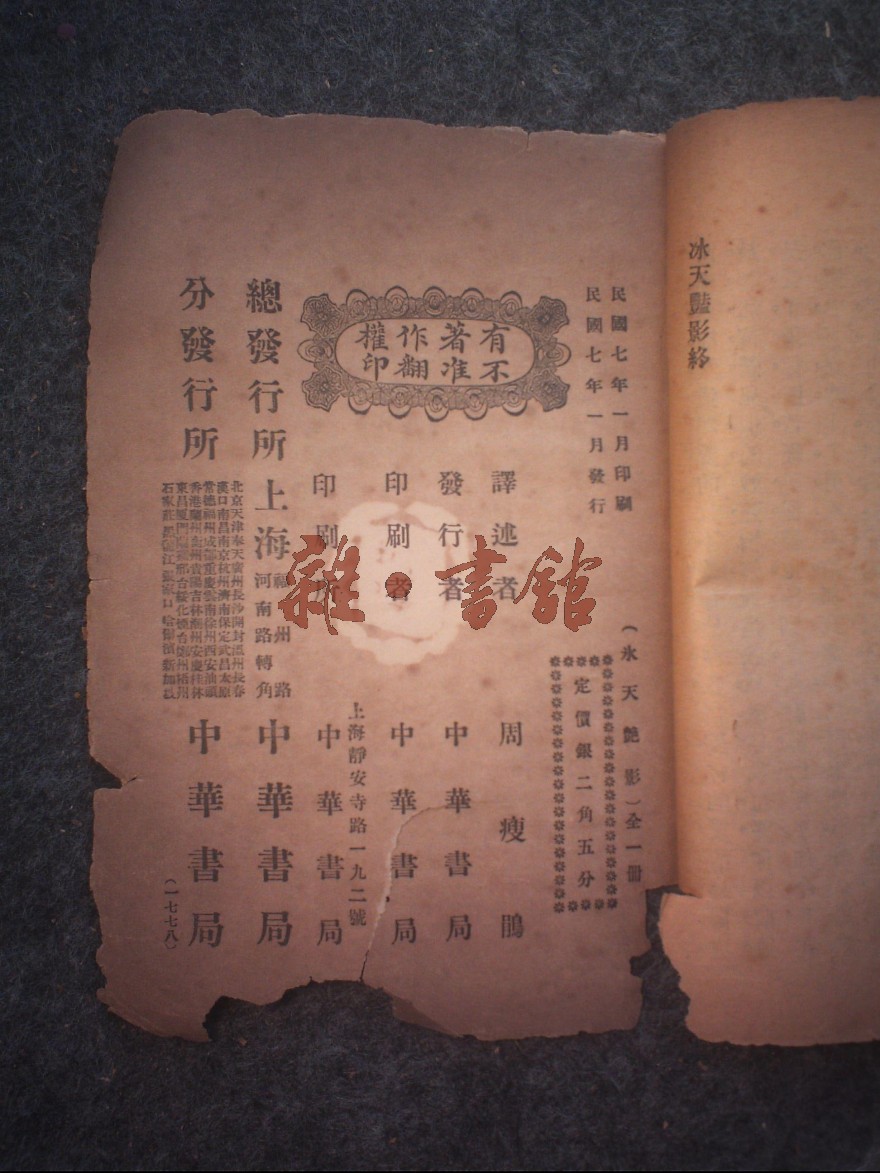 冰天豔影終
民國七年一月印刷
民國七年一月發行
(冰天艷影)全一冊
定價銀二角五分
有著作權
不准翻印
譯述者 周瘦鵑
發行者 中華書局
印刷者 中華書局
上海靜安寺路一九二號
印刷 中華書局
總發行所 上海 福州路河南路轉角 中華書局
分發行所
北京天津奉天廣州長沙開封溫州長春
漢口南昌南京杭州濟南保定武昌太原
常德福州成都重慶雲南徐州西安汕頭
香港蘭州 貴陽吉林潮州安慶桂林
東昌廈門
石家莊 江張家口哈爾濱新加坡
中華書局
(一七七八)
雜·書館